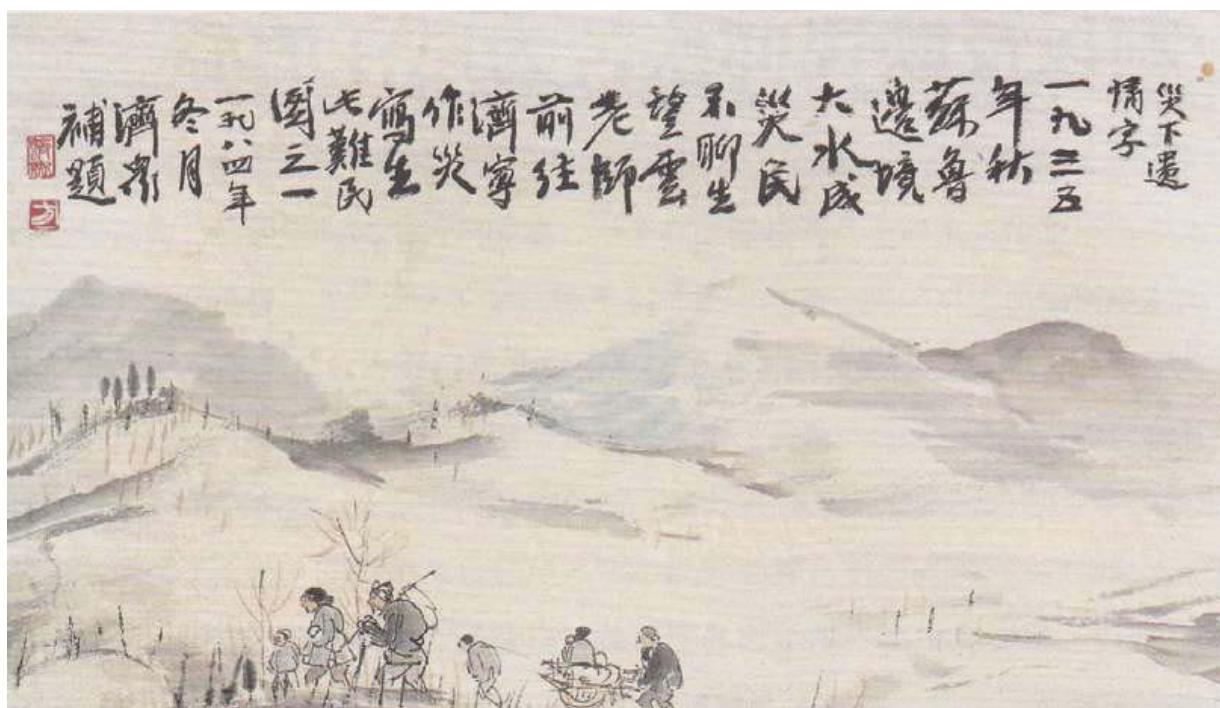 災下遺
情字
一九三五
年秋
蘇魯
邊境
大水成
災民
不聊生
望雲
老師
前往
濟寧
作災
寫生
此難民
圖之一
一九八四年
冬月
濟眾
補題